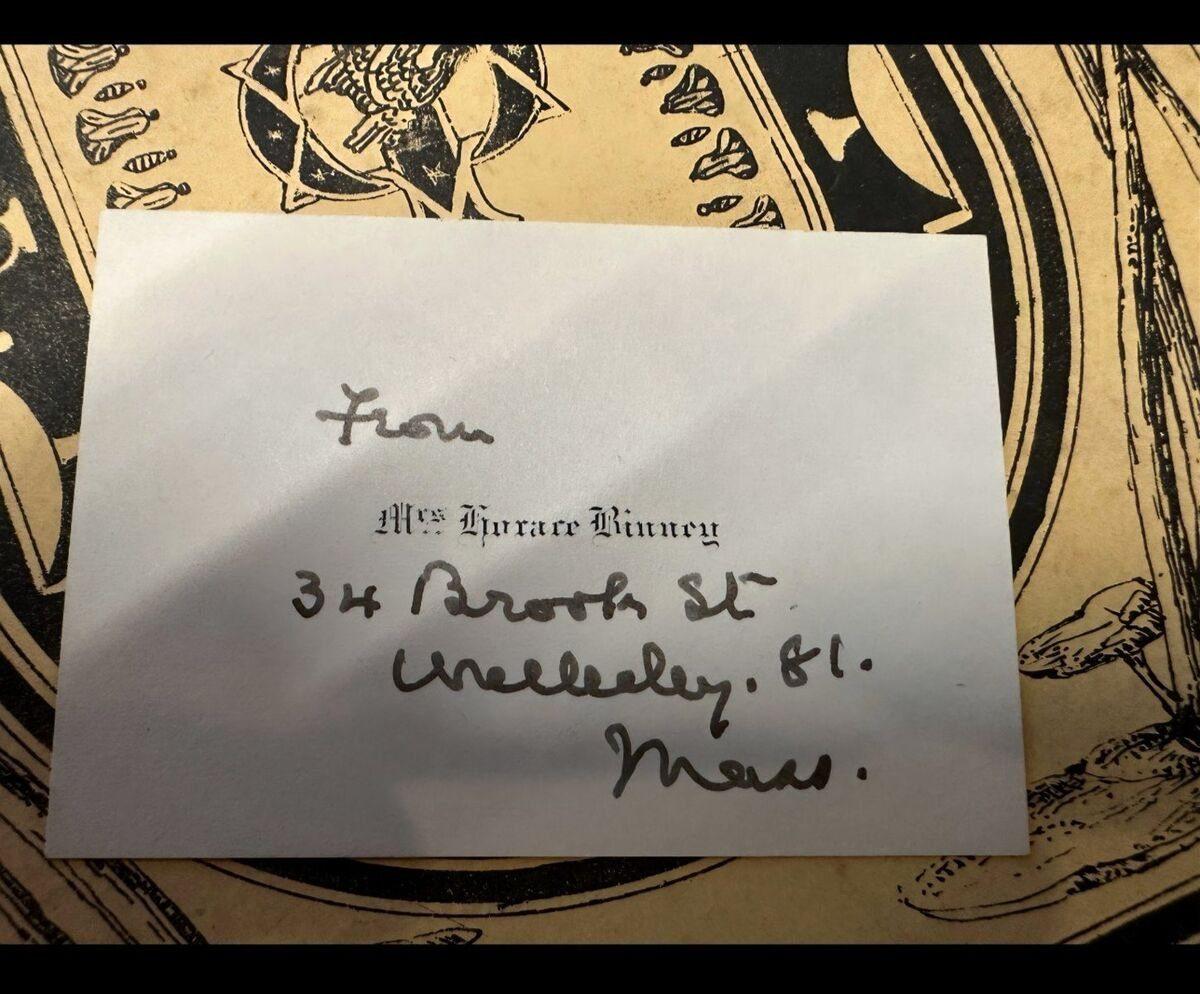 From
Mrs Horace Binney
34 Brook St
Wellesley. 81.
Mass.